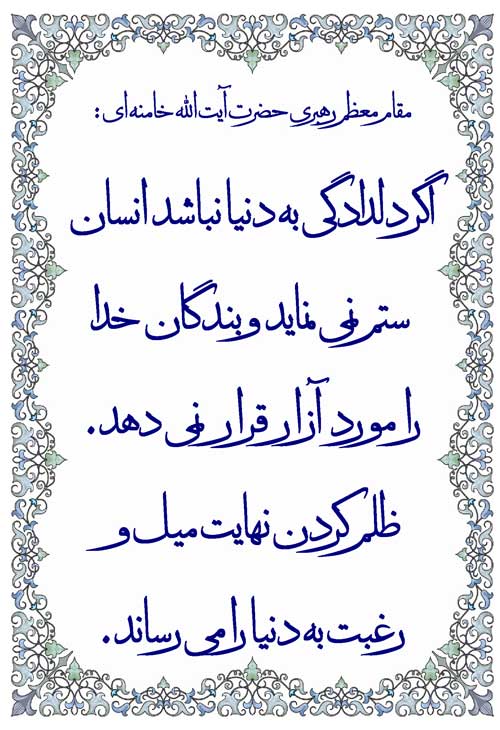 مقام معظم رهبری حضرت آیت الله خامنه ای :
اگر دلدادگی به دنیا نباشد انسان
ستم نمی نماید و بندگان خدا
را مورد آزار قرار نمی دهد.
ظلم کردن نهایت میل و
رغبت به دنیا را می رساند.